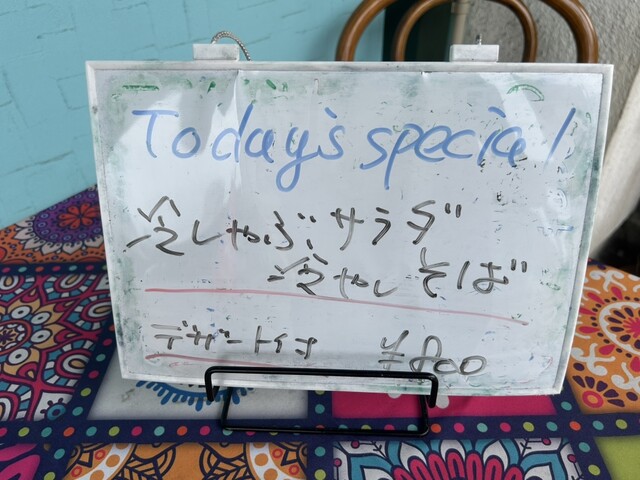 Today's special
冷しゃぶサラダ
冷やしそば
デザート付き
¥800